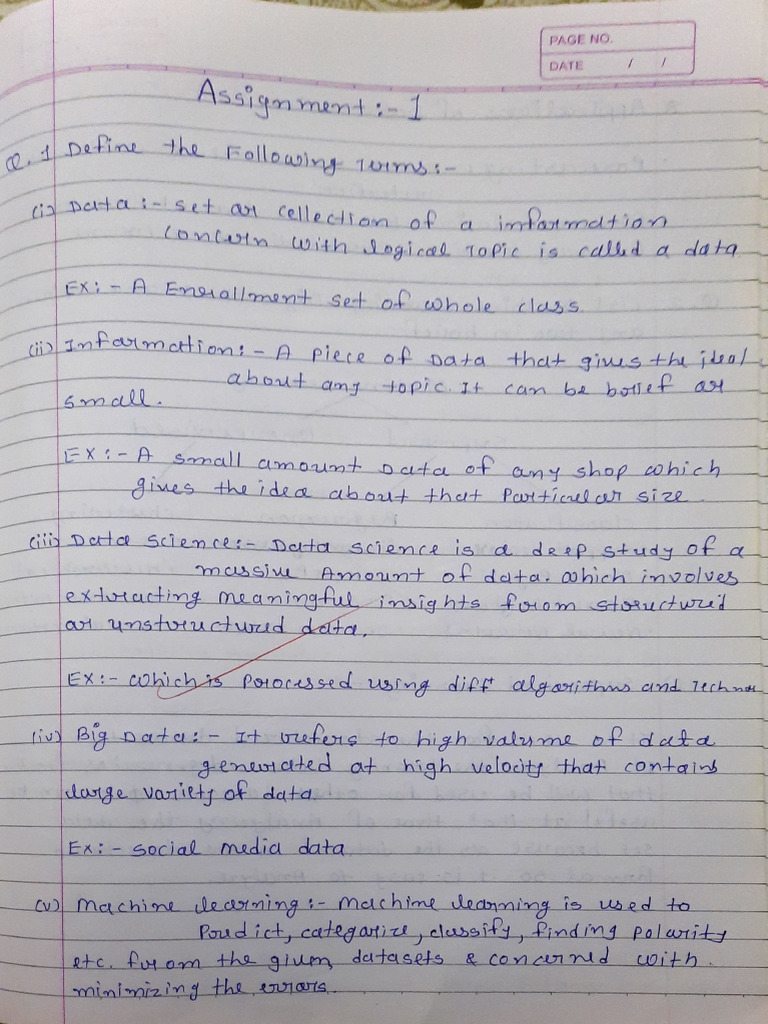 PAGE NO.
DATE / /
Assignment:- 1
Q.1 Define the Following Terms:-
(i) Data:- set or collection of a information
concern with logical Topic is called a data
EX:- A Enrollment set of whole class.
(ii) Information:- A piece of Data that gives the ideal
about any topic. It can be brief or
small.
EX:- A small amount Data of any shop which
gives the idea about that Particular size.
(iii) Data Science:- Data science is a deep study of a
massive Amount of data. which involves
extracting meaningful insights from structured
or unstructured data.
EX:- which is Processed using diff algorithms and
(iv) Big Data:- It refers to high volume of data
generated at high velocity that contains
large variety of data
Ex:- social media data
(v) Machine learning:- Machine learning is used to
Predict, categorize, classify, finding polarity
etc. from the given datasets & concerned with.
minimizing the errors.